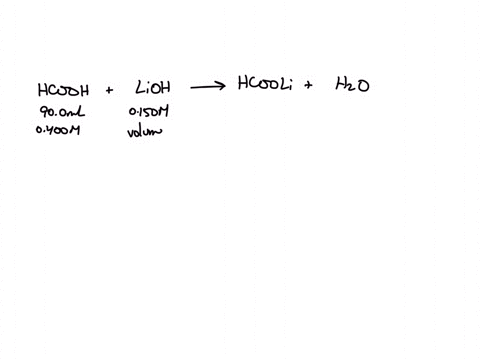 HCOOH + LiOH → HCOOLi + H₂O
90.0mL 0.150M
0.400M volume